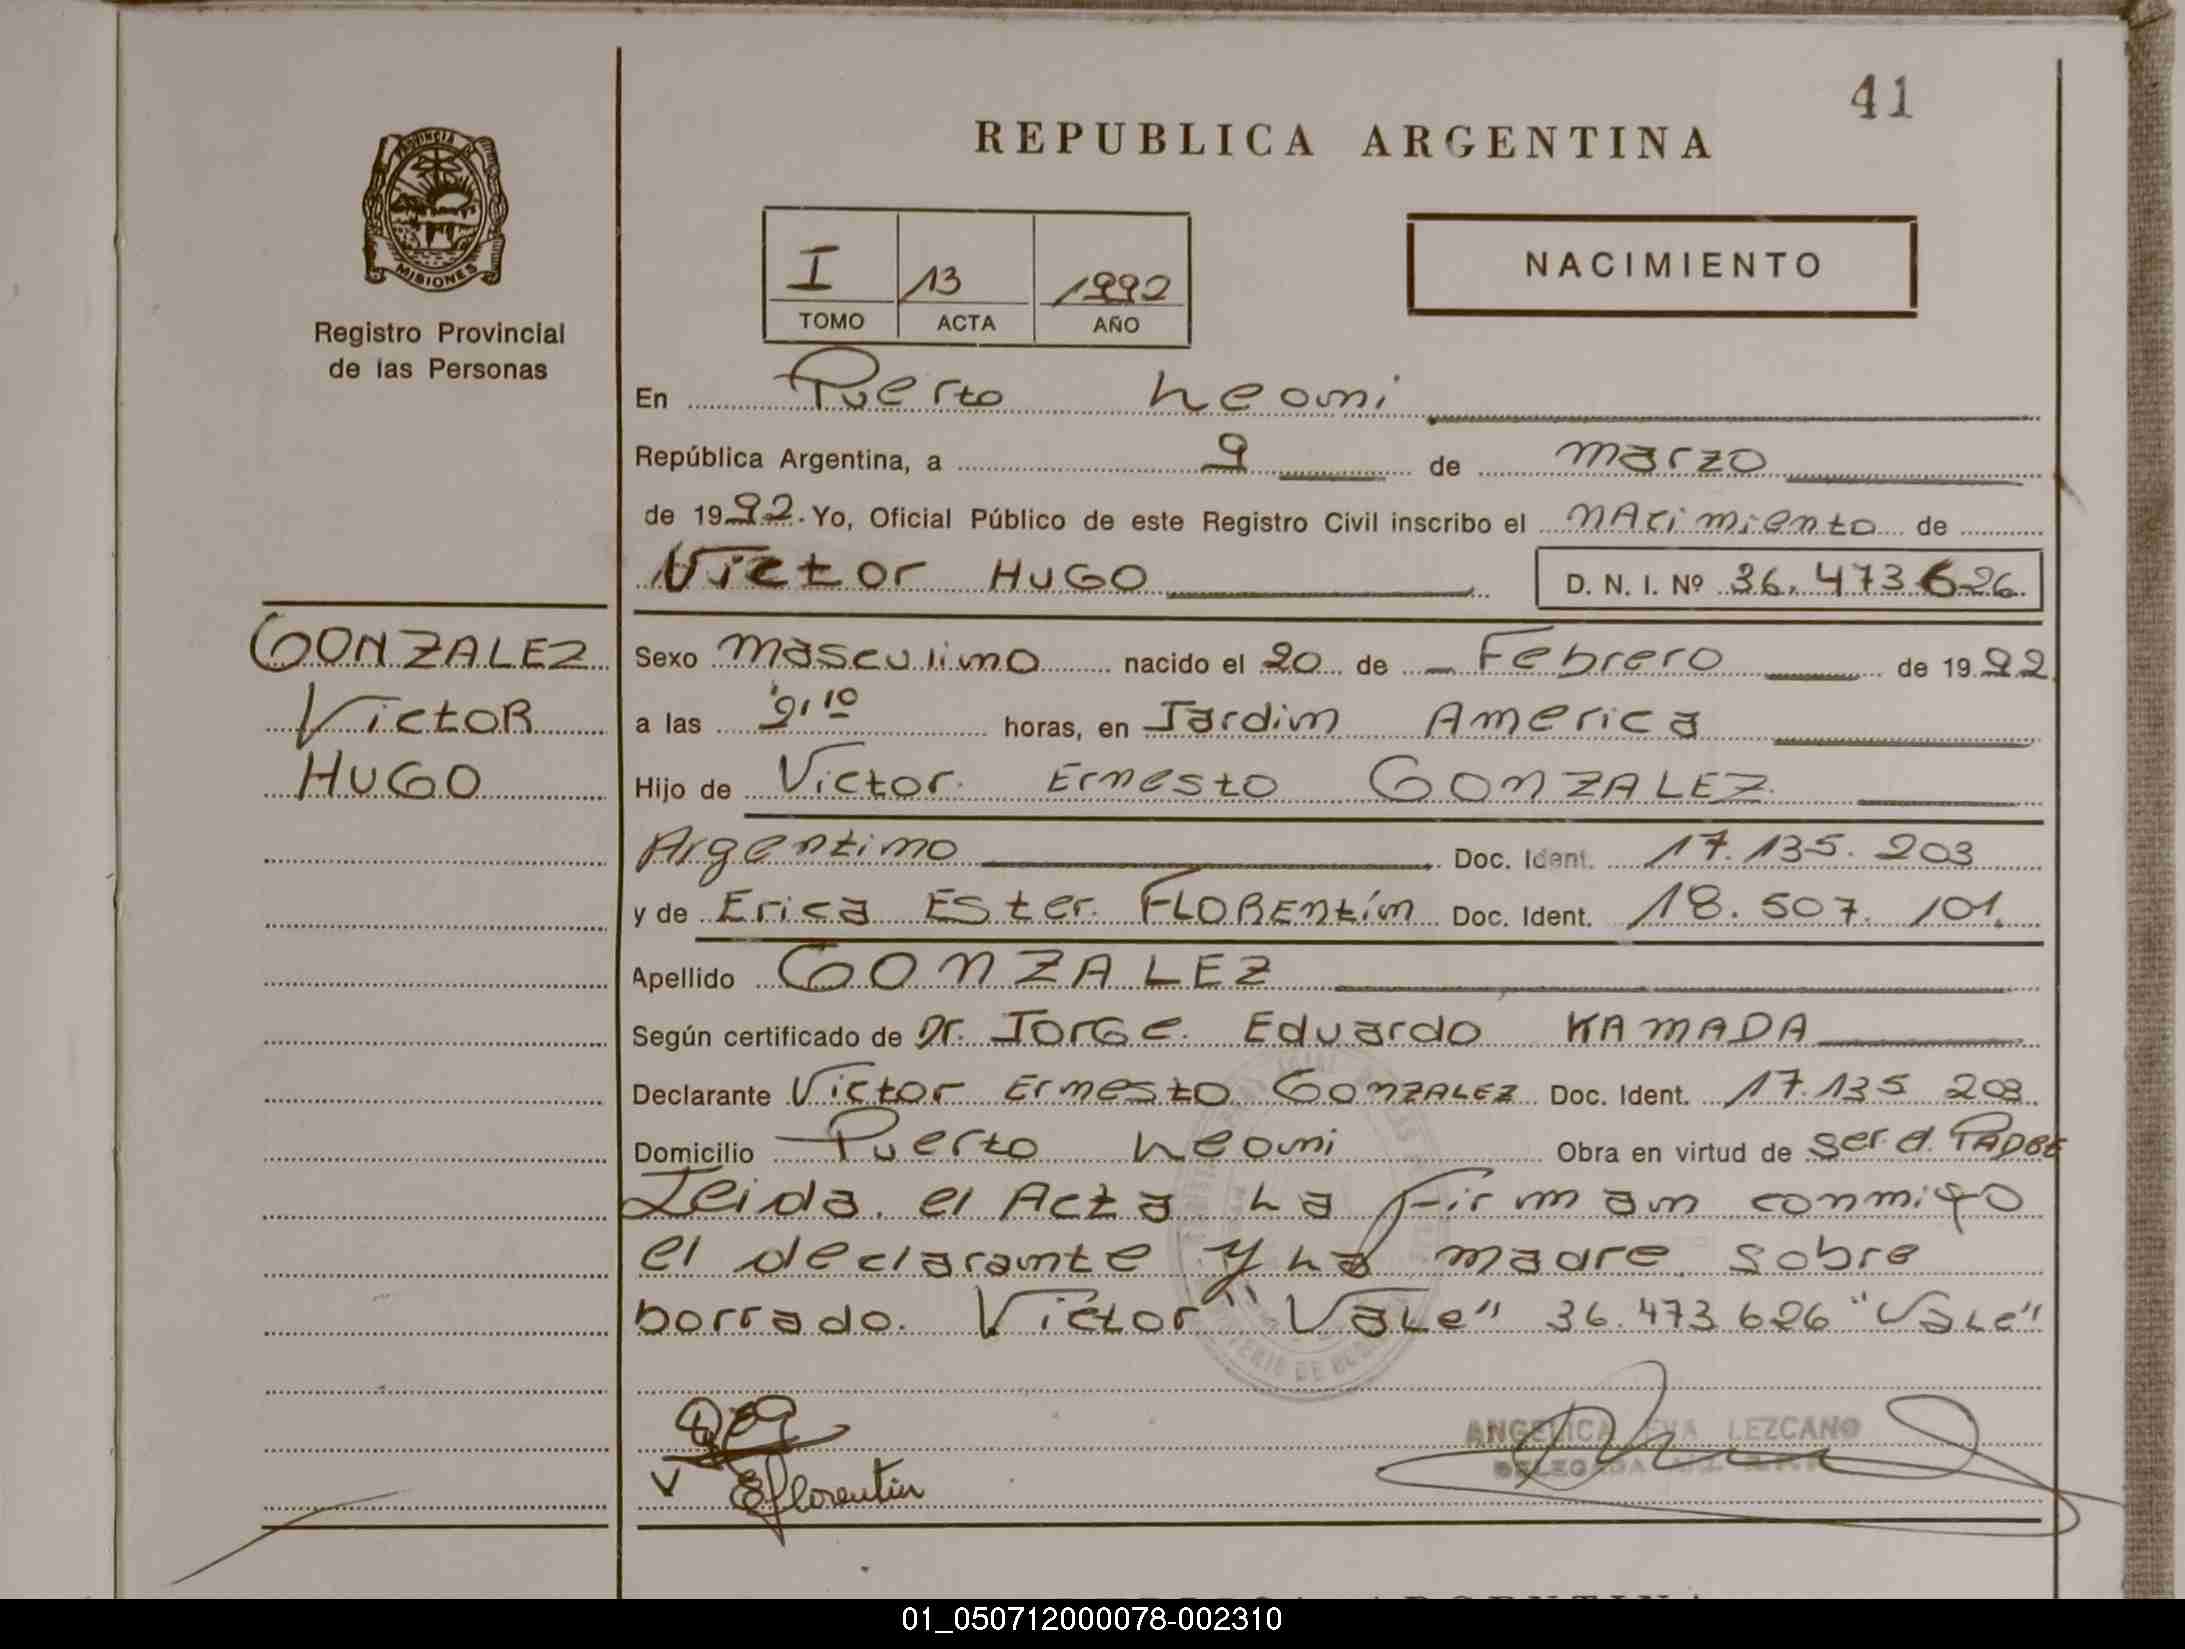 41
REPUBLICA ARGENTINA
PROVINCIA DE
MISIONES
Registro Provincial
de las Personas
I 13 1992
TOMO ACTA AÑO
NACIMIENTO
En Puerto Leoni
República Argentina, a 9 de marzo
de 1992. Yo, Oficial Público de este Registro Civil inscribo el nacimiento de
Victor HUGO D. N. I. Nº 36.473626
GONZALEZ
Victor
HUGO
Sexo masculino nacido el 20 de Febrero de 1992
a las 9,10 horas, en Jardin America
Hijo de Victor Ernesto GONZALEZ
Argentino Doc. Ident. 17.135.203
y de Erica Ester FLORENtín Doc. Ident. 18.507.101.
Apellido GONZALEZ
Según certificado de Dr. JORGe Eduardo KAMADA
Declarante Victor Ernesto GONZALEZ Doc. Ident. 17.135 203
Domicilio Puerto Leoni Obra en virtud de ser el PADRE
Leida el Acta La firman conmigo
el declarante y La madre. Sobre
borrado. Victor "VaLe" 36.473 626 "VaLe"
ANGELICA EVA LEZCANO
DELEGADA
Eflorentin
01_050712000078-002310